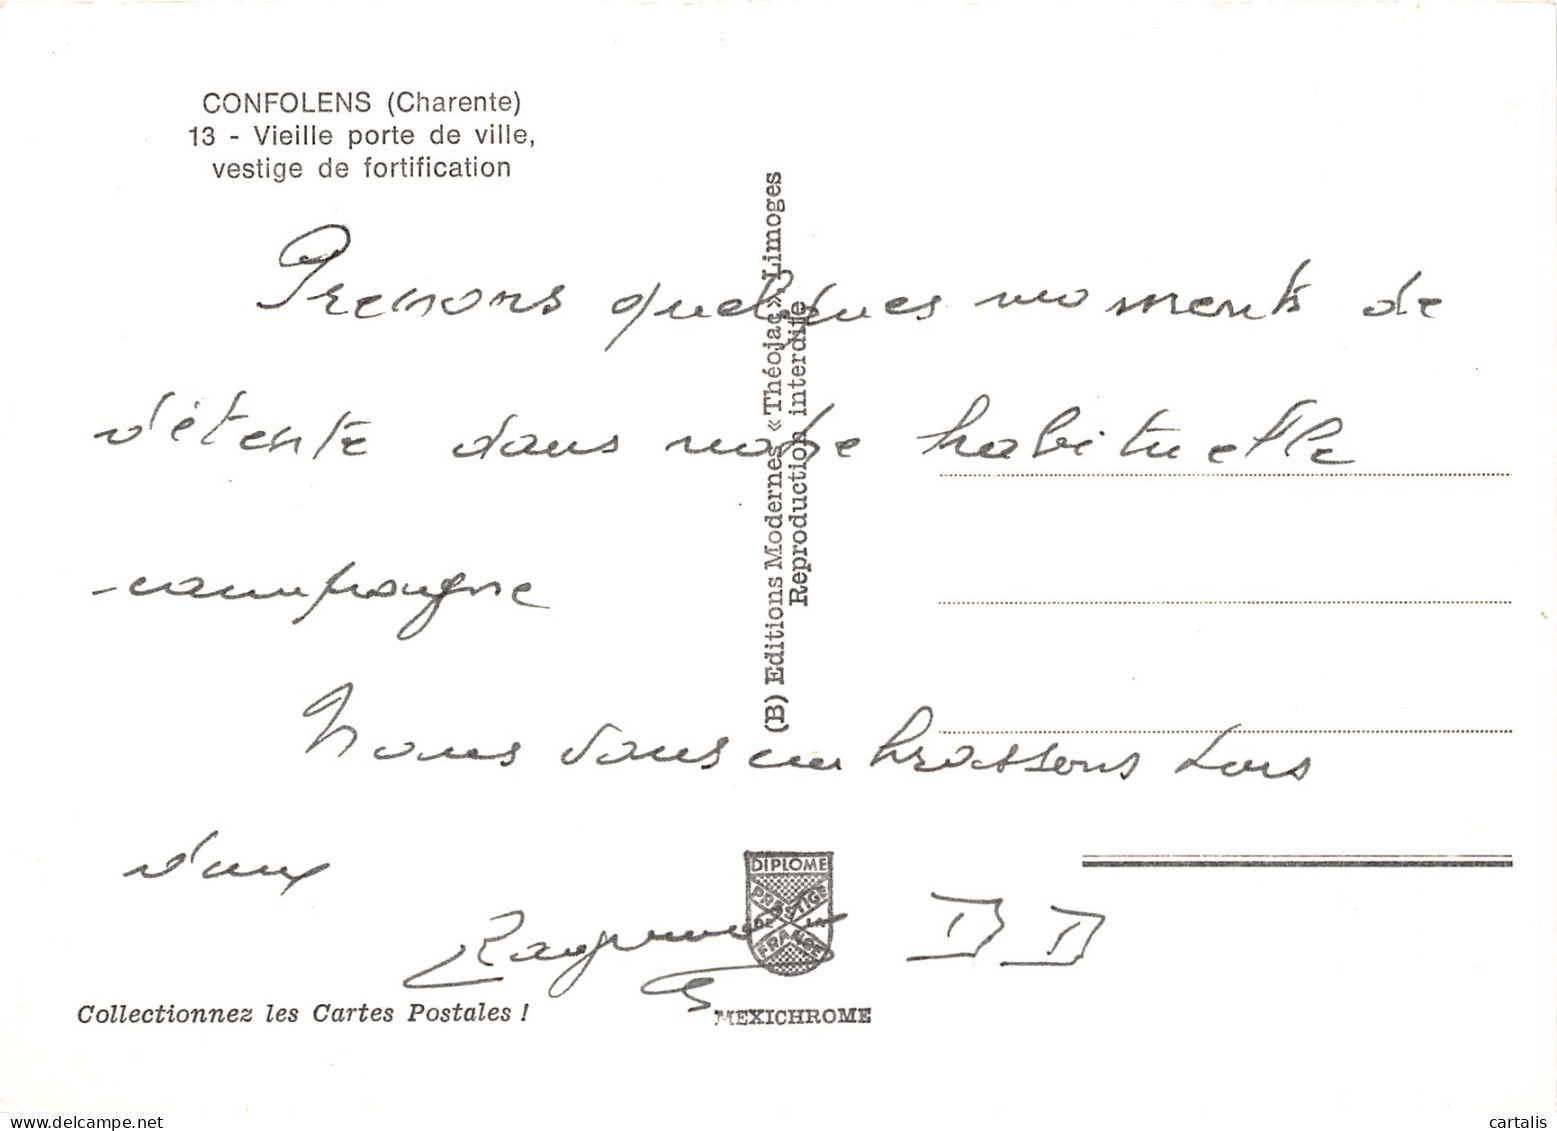 CONFOLENS (Charente)
13 - Vieille porte de ville,
vestige de fortification
(B) Editions Modernes « Théojac » Limoges
Reproduction interdite
Prenons quelques moments de
détente dans notre habituelle
campagne
Nous vous embrassons tous
deux
Raymond DD
DIPLOME
PRESTIGE
DE LA
FRANCE
Collectionnez les Cartes Postales !
MEXICHROME
delcampe.net
cartalis